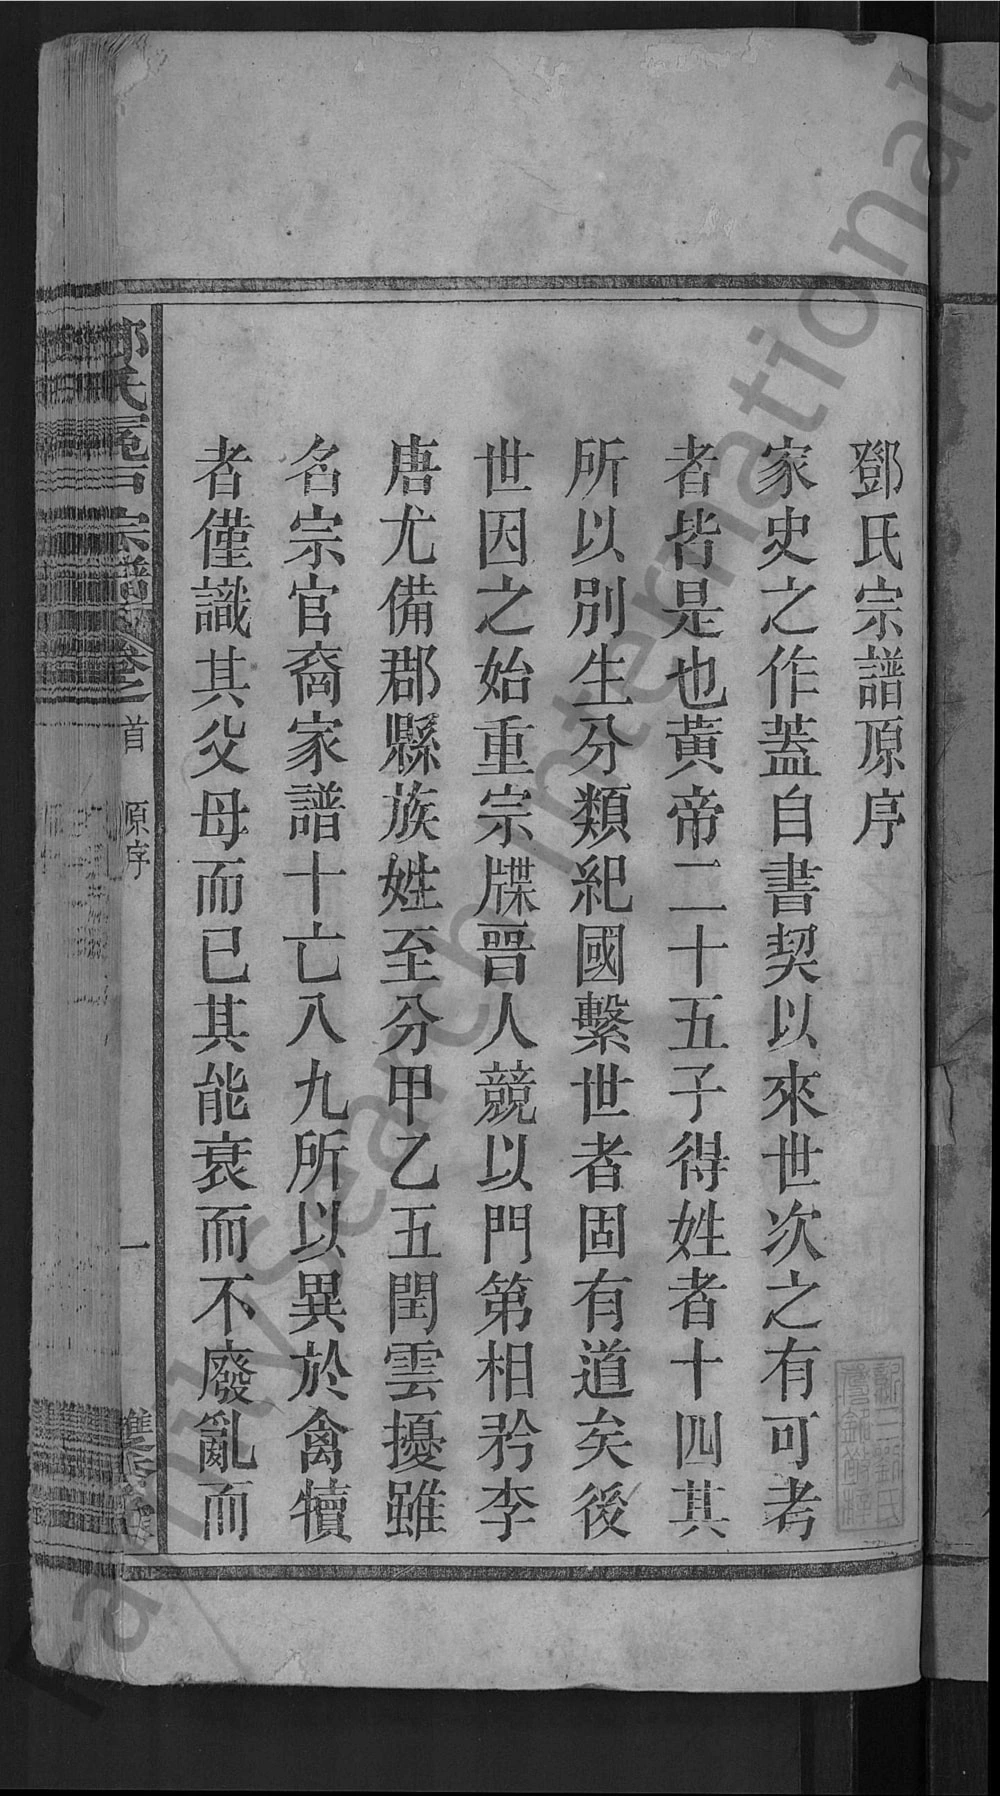 鄧氏宗譜原序
家史之作蓋自書契以來世次之有可考
者皆是也黃帝二十五子得姓者十四其
所以別生分類紀國繫世者固有道矣後
世因之始重宗牒晉人競以門第相矜李
唐尤備郡縣族姓至分甲乙五閏雲擾雖
名宗官裔家譜十亡八九所以異於禽犢
者僅識其父母而已其能衰而不廢亂而
氏 宗譜 卷之
首
原序
一
雙
FamilySearch International